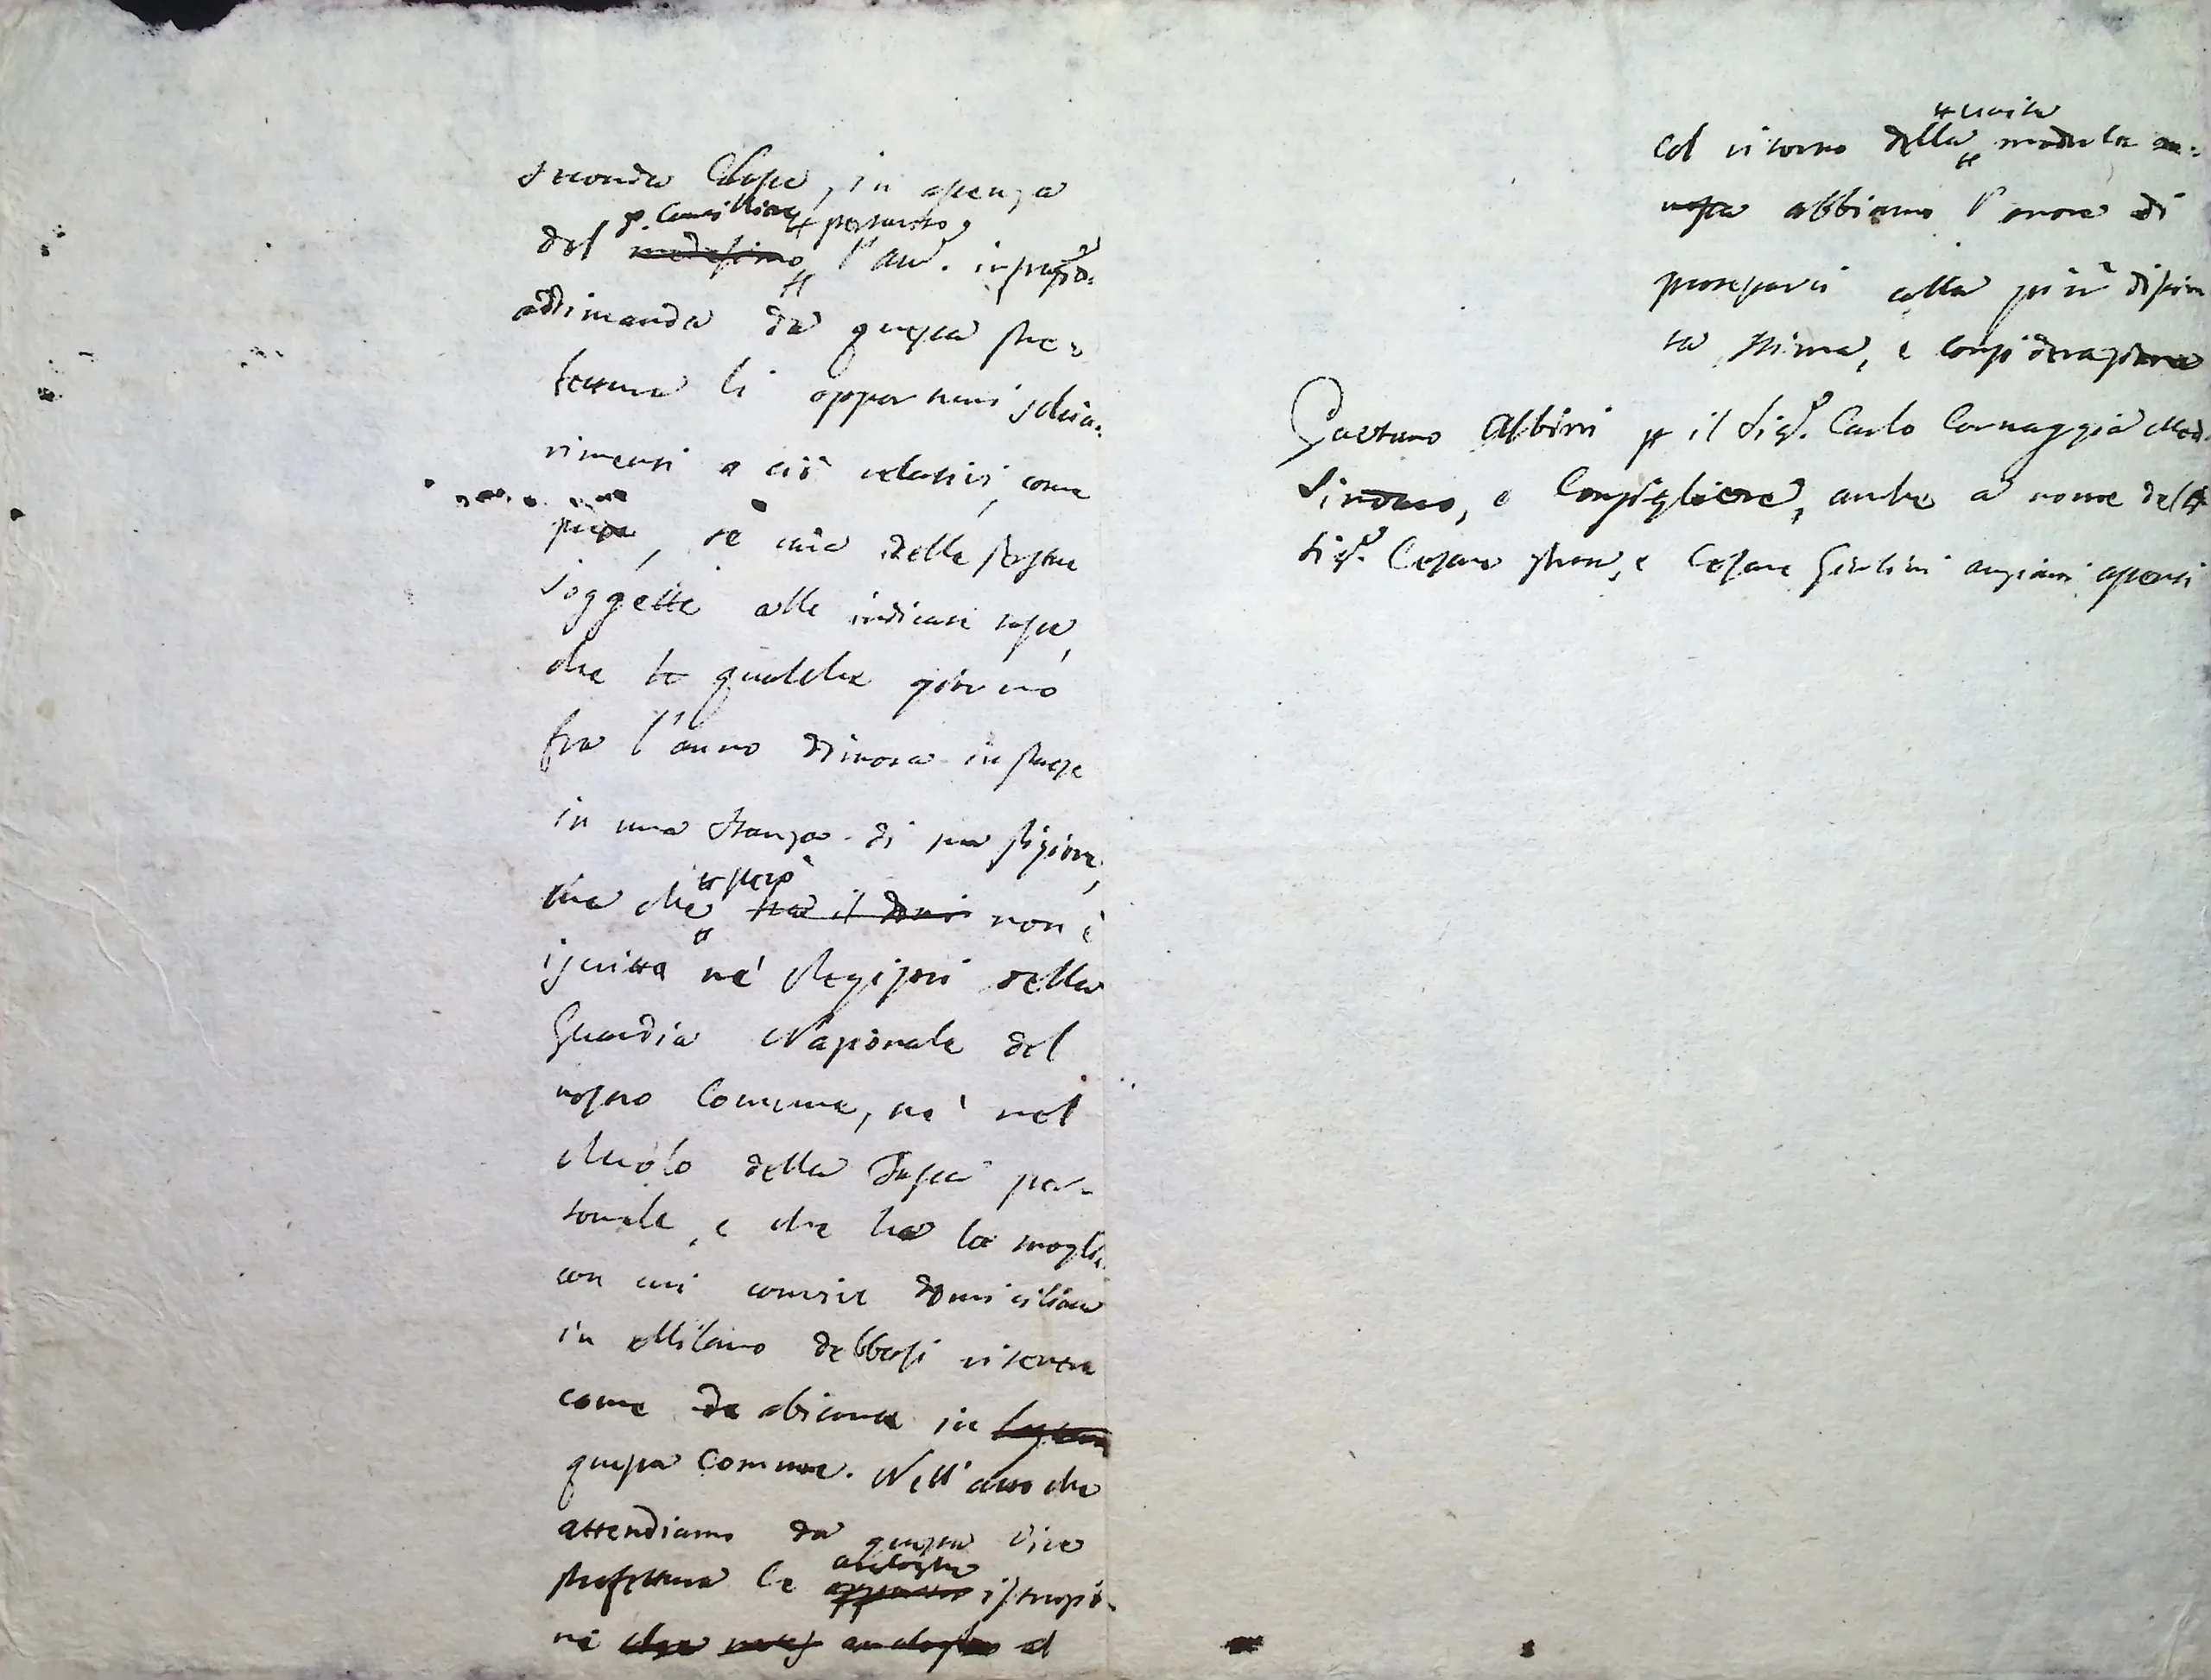 seconda Classe, in assenza
del medesimo p. Consigliere pertanto l'am.
addimanda da questa Pre-
fettura li opportuni schia-
rimenti a ciò relativi, come
pure, se una delle persone
soggette alle indicate tasse,
che per qualche giorno
fra l'anno dimora in Paese
in una stanza di sua pigione,
ma che però non è
iscritta nè Registri della
Guardia Nazionale del
nostro Comune, nè nel
Ruolo della Tassa per-
sonale, e che ha la moglie
con cui convive domiciliata
in Milano debbasi ritenere
come abitante in
questa Comune. Nell'atto che
attendiamo da questa Vice
Prefettura le analoghe istruzio-
ni col
col ritorno della unita modula an-
nessa abbiamo l'onore di
protestarvi colla più distin
ta stima, e considerazione
Gaetano Albini p il Sigr. Carlo Cornaggia Med.
Sindaco, e Consigliere, anche a nome delli
Sigr. Cesare , e Cesare Giulini anziani assenti